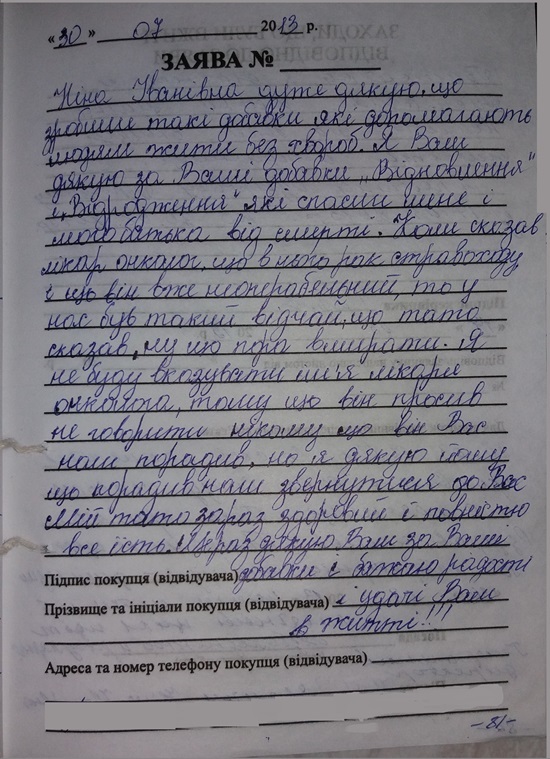 « 30 » 07 2013 р.
ЗАЯВА №
Ніна Іванівна дуже дякую, що
зробили такі добавки які допомагають
людям жити без хвороб. Я Вам
дякую за Ваші добавки „Відновлення"
і „Відродження" які спасли мене і
мого батька від смерті. Коли сказав
лікар онколог, що в нього рак стравоходу
і що він вже неоперабельний, то у
нас був такий відчай, що тато
сказав, ну що пора вмирати. Я
не буду вказувати ім'я лікаря
онколога, тому що він просив
не говорити нікому що він Вас
нам порадив, но я дякую йому
що порадив нам звернутися до Вас
Мій тато зараз здоровий і повністю
все їсть. Ще раз дякую Вам за Ваші
Підпис покупця (відвідувача) добавки і бажаю радості
Прізвище та ініціали покупця (відвідувача) і удачі Вам
в житті!!!
Адреса та номер телефону покупця (відвідувача)
-81-